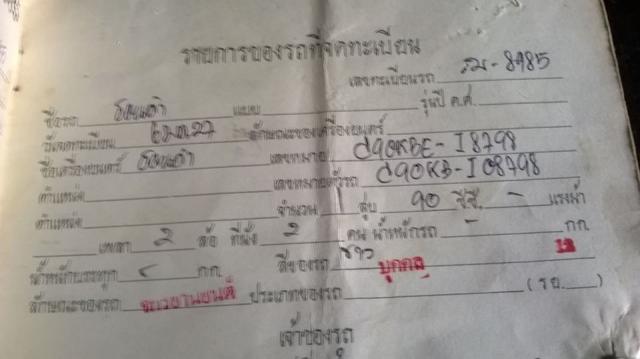 รายการของรถที่จดทะเบียน
เลขทะเบียนรถ รม-8485
ชื่อรถ ฮอนด้า แบบ รุ่นปี ค.ศ.
วันจดทะเบียน ลักษณะของเครื่องยนต์
ชื่อเครื่องยนต์ ฮอนด้า เลขหมาย C90KBE-I8798
ตำแหน่ง เลขหมายตัวรถ C90KB-I08798
ตำแหน่ง จำนวน สูบ 90 ซีซี. - แรงม้า
เพลา 2 ล้อ ที่นั่ง 2 คน น้ำหนักรถ - กก.
น้ำหนักบรรทุก - กก. สีของรถ ขาว
ลักษณะของรถ จักรยานยนต์ ประเภทของรถ บุคคล 12 (รย.)
เจ้าของรถ